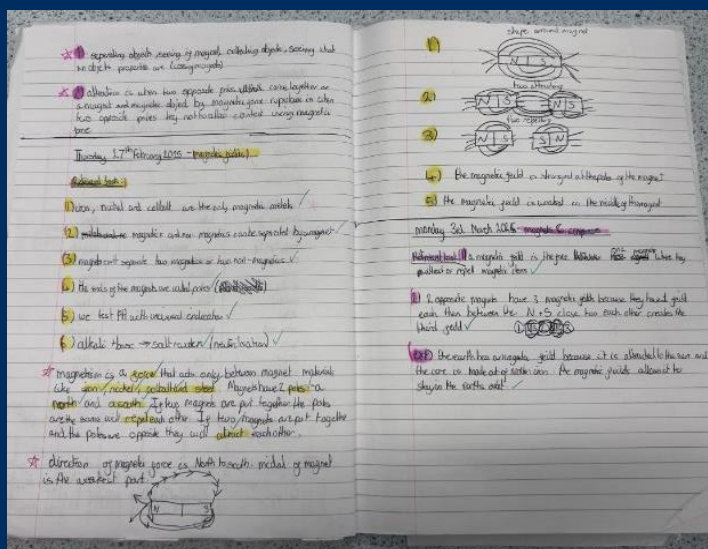 1) separating objects, seeing if magnet, collecting objects, seeing what
the objects properties are (using magnets)
2) attraction is when two opposite poles come together or
a magnet and magnetic object by magnetic force repulsion is when
two opposite poles try not to after contact using magnetic
force
Thursday 27th February 2025 - magnetic fields
Retrieval task:
1) iron, nickel and cobalt are the only magnetic metals
2) magnetics and non magnetics can be separated by a magnet
3) magnets can't separate two magnetics or two non-magnetics
4) the ends of the magnets are called poles
5) we test PH with universal indicator
6) alkali + base → salt + water (neutrilisation)
magnetism is a force that acts only between magnet materials
like iron, nickel, cobalt and steel. Magnets have 2 poles a
north and a south. If two magnets are put together the poles
are the same will repel each other. If two magnets are put together
and the poles are opposite they will attract each other.
direction of magnetic force is North to south. middle of magnet
is the weakest part.
N S
shape around magnet
1)
N S
two attracting
2)
N S N S
two repelling
3)
N S S N
4) the magnetic field is strongest at the poles of the magnet
5) the magnetic field is weakest in the middle of the magnet
monday 3rd March 2025 - magnets & compass
Retrieval task: 1) a magnetic field is the force where they
pulled or repel magnetic items
2) 2 opposite magnets have 3 magnetic fields because they have 1 field
each then between the N + S close two each other creates the
third field
the earth has a magnetic field because it is attracted to the sun and
the core is made of iron. the magnetic fields allows it to
stay on the earths orbit